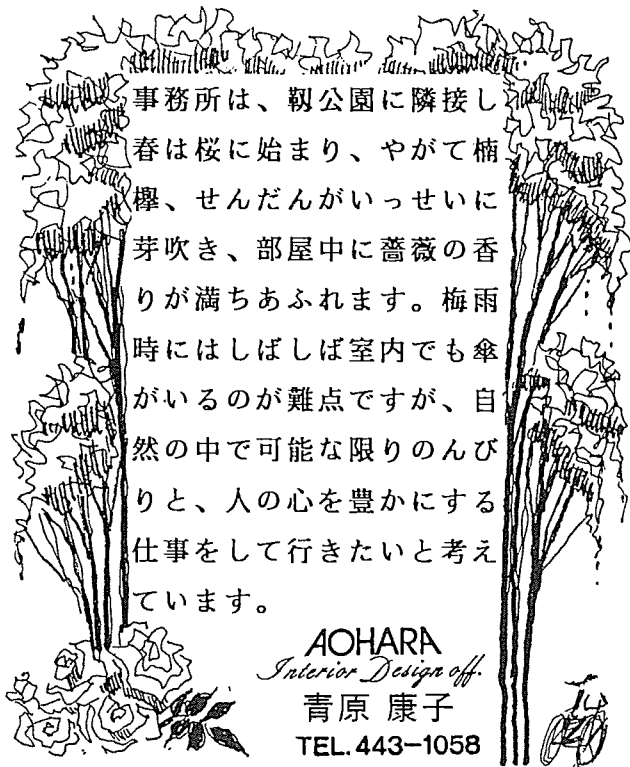 事務所は、靱公園に隣接し
春は桜に始まり、やがて楠
欅、せんだんがいっせいに
芽吹き、部屋中に薔薇の香
りが満ちあふれます。梅雨
時にはしばしば室内でも傘
がいるのが難点ですが、自
然の中で可能な限りのんび
りと、人の心を豊かにする
仕事をして行きたいと考え
ています。
AOHARA
Interior Design off.
青原 康子
TEL.443-1058